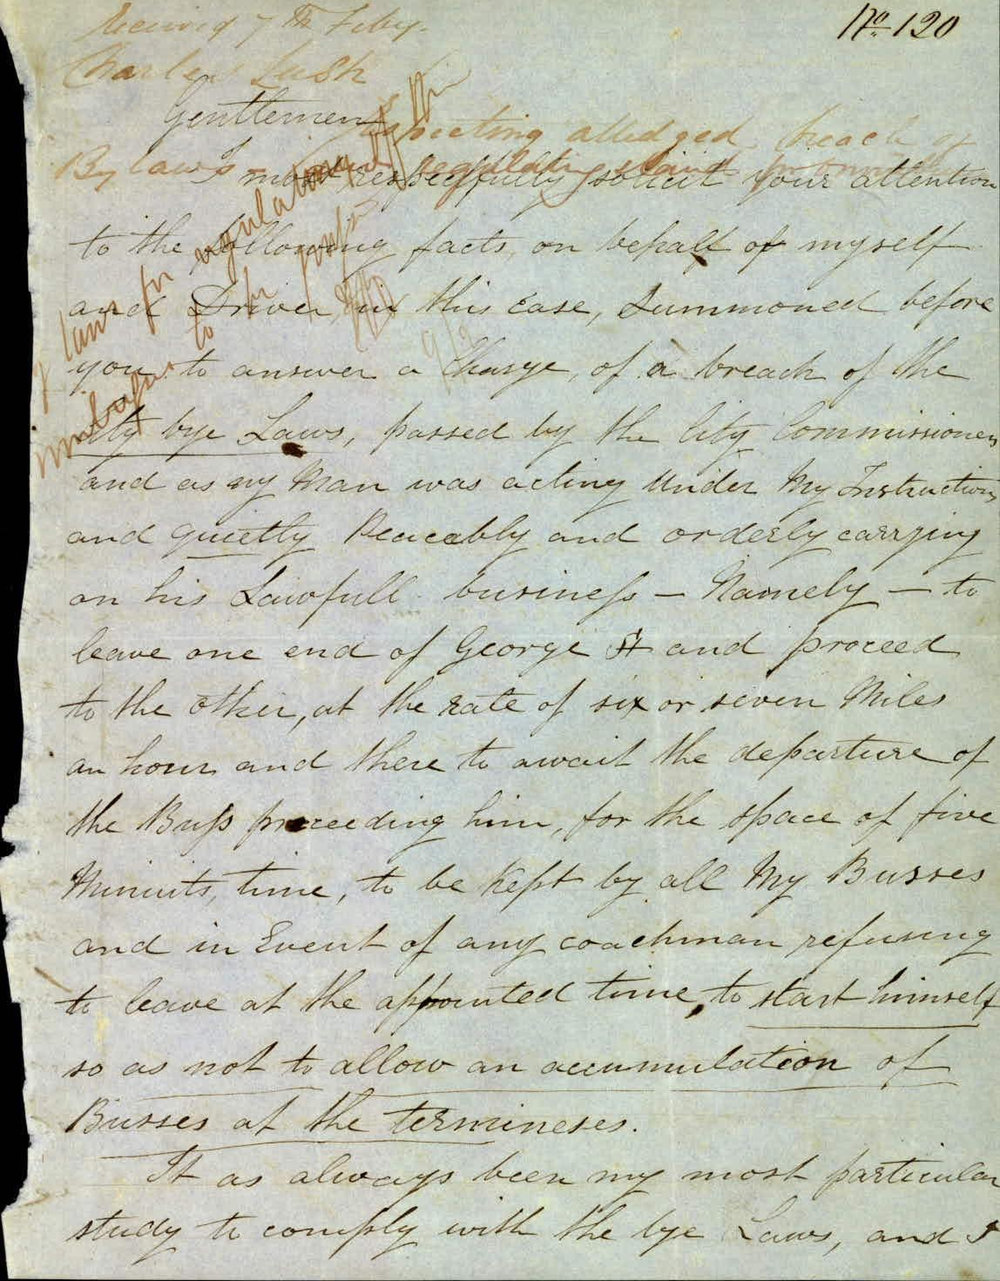 No. 120
Received 7th Feby.
Charles Lush
Gentlemen
respecting alledged breach of
By laws
I most respectfully solicit your attention
to the following facts, on behalf of myself
and Driver, in this Case, Summoned before
you to answer a Charge, of a breach of the
City bye Laws, passed by the City Commissioners
and as my Man was acting Under My Instructions
and quietly Peaceably and orderly carrying
on his Lawfull business — Namely — to
leave one end of George St and proceed
to the other, at the rate of six or seven Miles
an hour and there to await the departure of
the Buss preceeding him, for the space of five
Minuits, time, to be Kept by all My Busses
and in Event of any coachman refusing
to leave at the appointed time, to start himself
so as not to allow an accumulation of
Busses at the termineses.
It as always been my most particular
study to comply with the bye Laws, and I
laws for regulation of
omnibuses to be